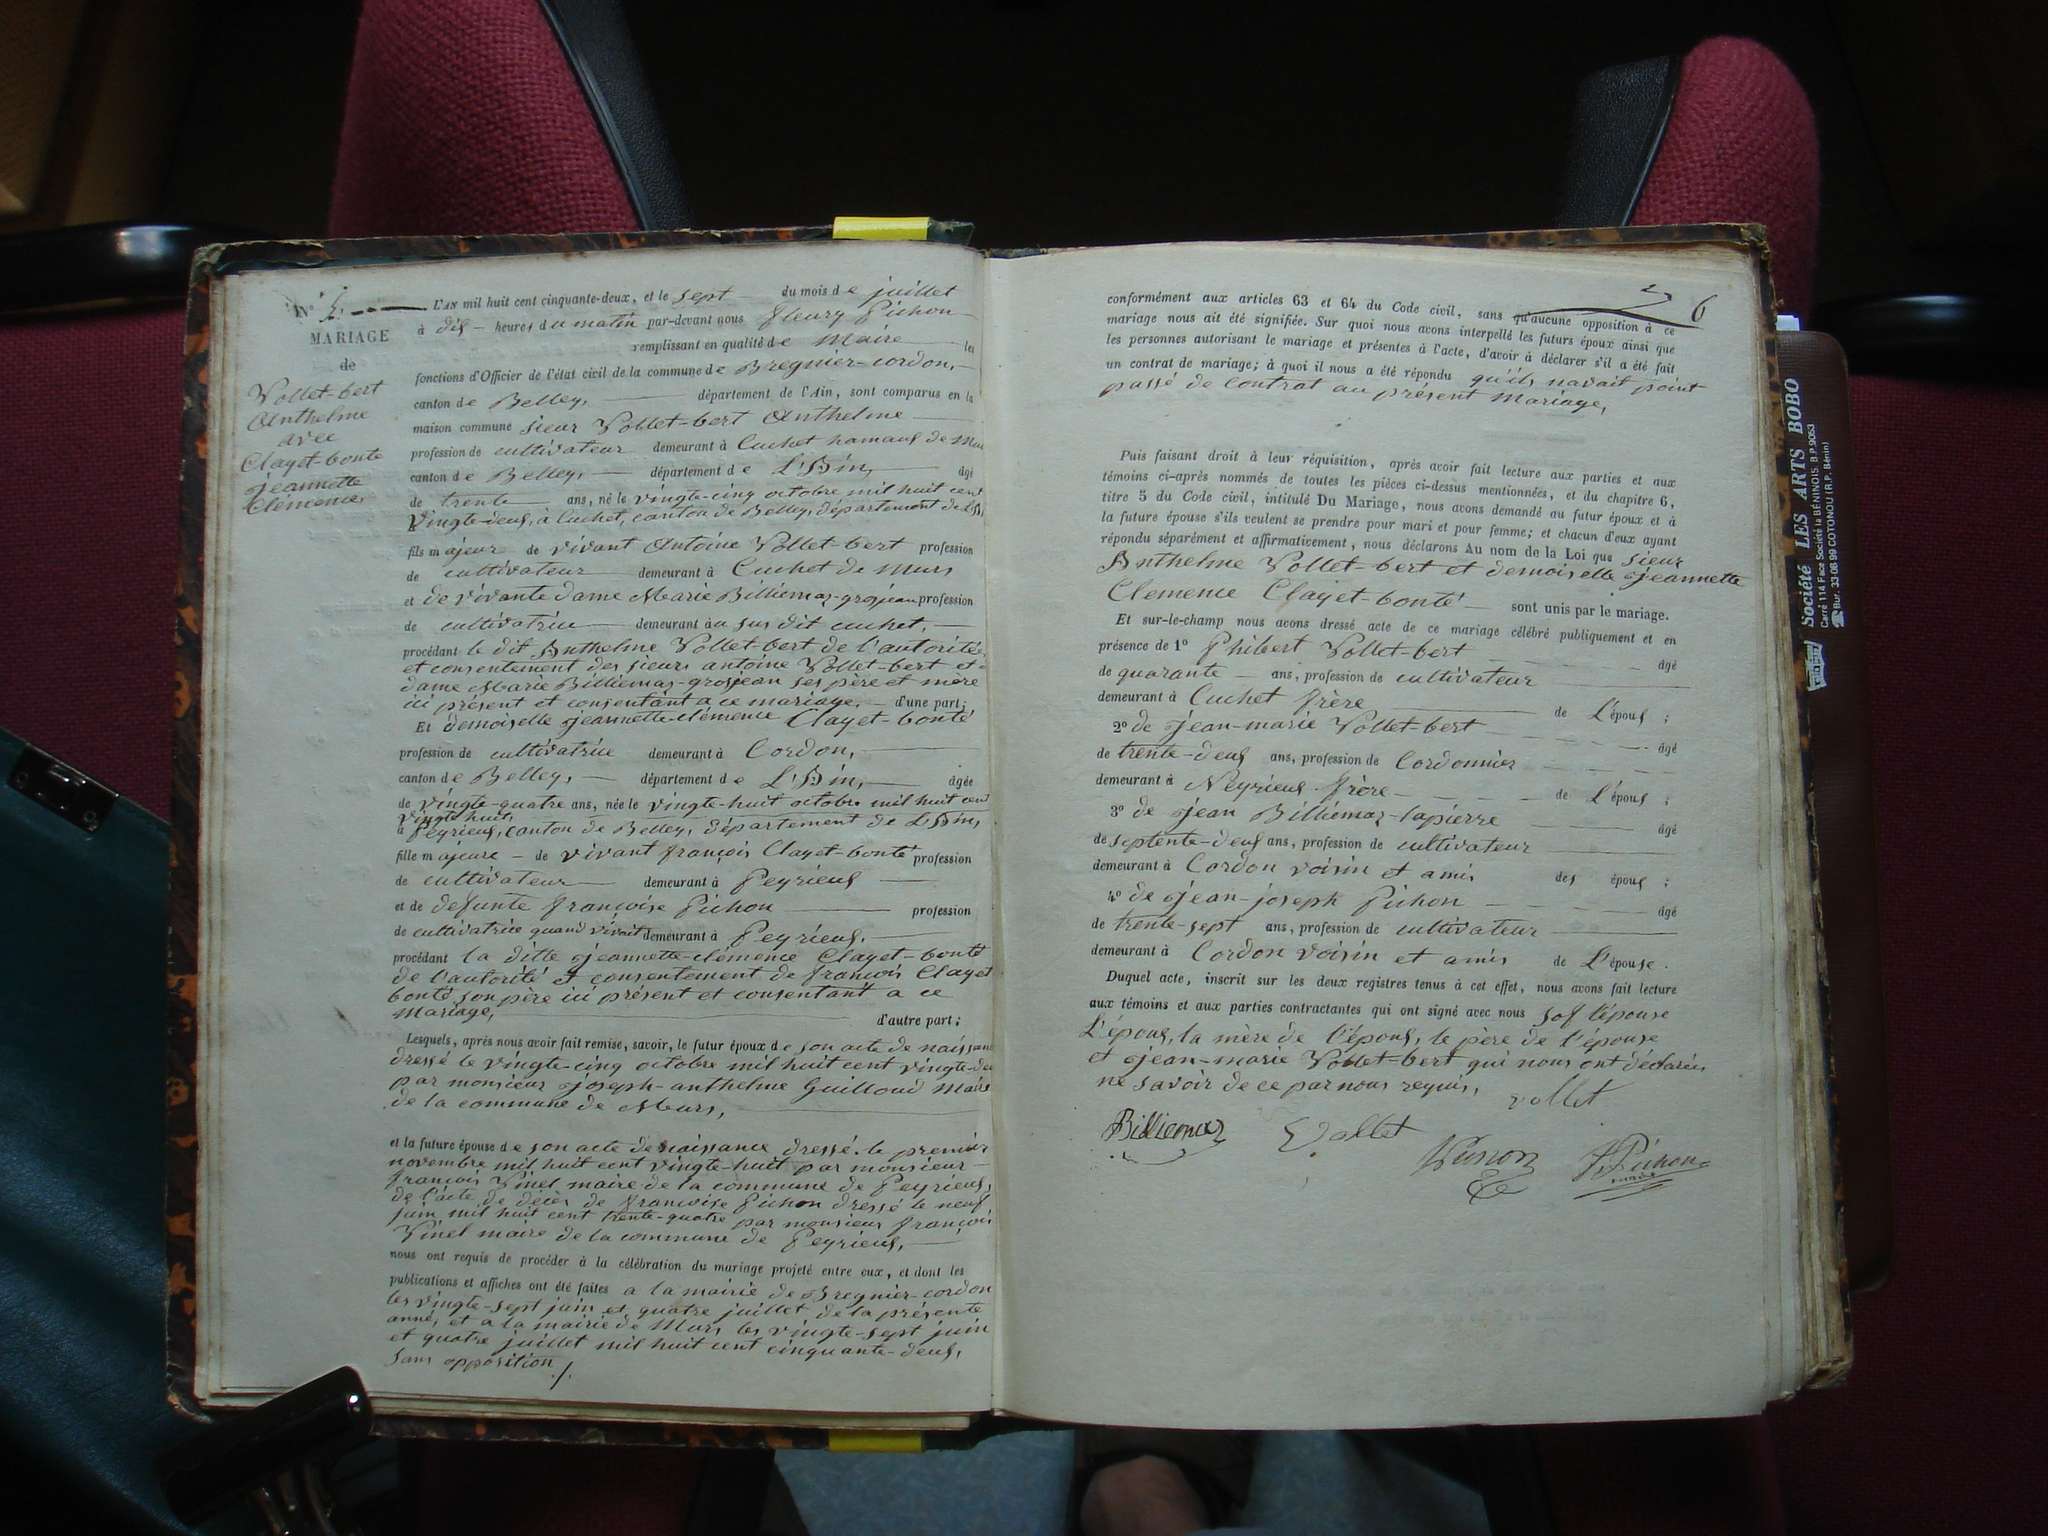 N° 5.
MARIAGE
de
Vollet-bert
Anthelme
avec
Clayet-bonté
Jeannette
Clémence,
L'AN mil huit cent cinquante-deux, et le sept du mois de juillet
à dix heures du matin par-devant nous fleury Pichon
remplissant en qualité de Maire les
fonctions d'Officier de l'état civil de la commune de Bregnier-cordon,
canton de Belley, département de l'Ain, sont comparus en la
maison commune sieur Vollet-bert Anthelme
profession de cultivateur demeurant à Cuchet hamaus de Mur
canton de Belley, département de L'Ain, âgé
de trente ans, né le vingt-cinq octobre mil huit cent
vingt-deux, à Cuchet, canton de Belley, département de L'Ain
fils majeur de vivant Antoine Vollet-bert profession
de cultivateur demeurant à Cuchet de Murs
et de vivante dame Marie Billiemaz-grosjean profession
de cultivatrice demeurant au sus dit cuchet,
procédant le dit Anthelme Vollet-bert de l'autorité
et consentement des sieurs antoine Vollet-bert et
dame Marie Billiemaz-grosjean ses père et mère
ici présent et consentant a ce mariage, d'une part;
Et demoiselle Jeannette-clémence Clayet-bonté
profession de cultivatrice demeurant à Cordon,
canton de Belley, département de L'Ain, âgée
de vingt-quatre ans, née le vingt-huit octobre mil huit cent
vingt huit,
à Peyrieux, canton de Belley, département de L'Ain,
fille majeure de vivant françois Clayet-bonté profession
de cultivateur demeurant à Peyrieux
et de defunte françoise Pichon profession
de cultivatrice quand vivait demeurant à Peyrieux.
procédant la ditte Jeannette-clémence Clayet-bonté
de l'autorité et consentement de françois Clayet
bonté son père ici présent et consentant a ce
Mariage, d'autre part;
Lesquels, après nous avoir fait remise, savoir, le futur époux de son acte de naissan
dressé le vingt-cinq octobre mil huit cent vingt-de
par monsieur Joseph-anthelme Guilloud Maire
de la commune de Murs,
et la future épouse de son acte de naissance dressé le premier
novembre mil huit cent vingt-huit par monsieur
françois Vinel maire de la commune de Peyrieux,
de l'acte de décès de françoise Pichon dressé le neuf
juin mil huit cent trente-quatre par monsieur françois
Vinel maire de la commune de Peyrieux,
nous ont requis de procéder à la célébration du mariage projeté entre eux, et dont les
publications et affiches ont été faites a la mairie de Bregnier-cordon
les vingt-sept juin et quatre juillet de la présente
anné, et a la mairie de Murs les vingt-sept juin
et quatre juillet mil huit cent cinquante-deux,
Sans opposition
6
conformément aux articles 63 et 64 du Code civil, sans qu'aucune opposition à ce
mariage nous ait été signifiée. Sur quoi nous avons interpellé les futurs époux ainsi que
les personnes autorisant le mariage et présentes à l'acte, d'avoir à déclarer s'il a été fait
un contrat de mariage; à quoi il nous a été répondu qu'ils navait point
passé de contrat au présent Mariage,
Puis faisant droit à leur réquisition, après avoir fait lecture aux parties et aux
témoins ci-après nommés de toutes les pièces ci-dessus mentionnées, et du chapitre 6,
titre 5 du Code civil, intitulé Du Mariage, nous avons demandé au futur époux et à
la future épouse s'ils veulent se prendre pour mari et pour femme; et chacun d'eux ayant
répondu séparément et affirmativement, nous déclarons Au nom de la Loi que sieur
Anthelme Vollet-bert et demoiselle Jeannette
Clemence Clayet-bonté sont unis par le mariage.
Et sur-le-champ nous avons dressé acte de ce mariage célébré publiquement et en
présence de 1° Phibert Vollet-bert âgé
de quarante ans, profession de cultivateur
demeurant à Cuchet frère de L'époux ;
2° de Jean-marie Vollet-bert âgé
de trente-deux ans, profession de Cordonnier
demeurant à Neyrieux frère de L'époux ;
3° de Jean Billiémaz-lapierre âgé
de septente-deux ans, profession de cultivateur
demeurant à Cordon voisin et amis des époux ;
4° de Jean-joseph Pichon âgé
de trente-sept ans, profession de cultivateur
demeurant à Cordon voisin et amis de L'épouse.
Duquel acte, inscrit sur les deux registres tenus à cet effet, nous avons fait lecture
aux témoins et aux parties contractantes qui ont signé avec nous sof l'épouse
L'époux, la mère de l'époux, le père de l'épouse
et Jean-marie Vollet-bert qui nous ont déclarés
ne savoir de ce par nous requis,
vollet
Billiemaz
Vollet
Pichon
Pichon
Société LES ARTS BOBO
Carré 114 Face Société la BÉNINOIS B.P.9053
Bur. 33-08-99 COTONOU (R.P. Bénin)